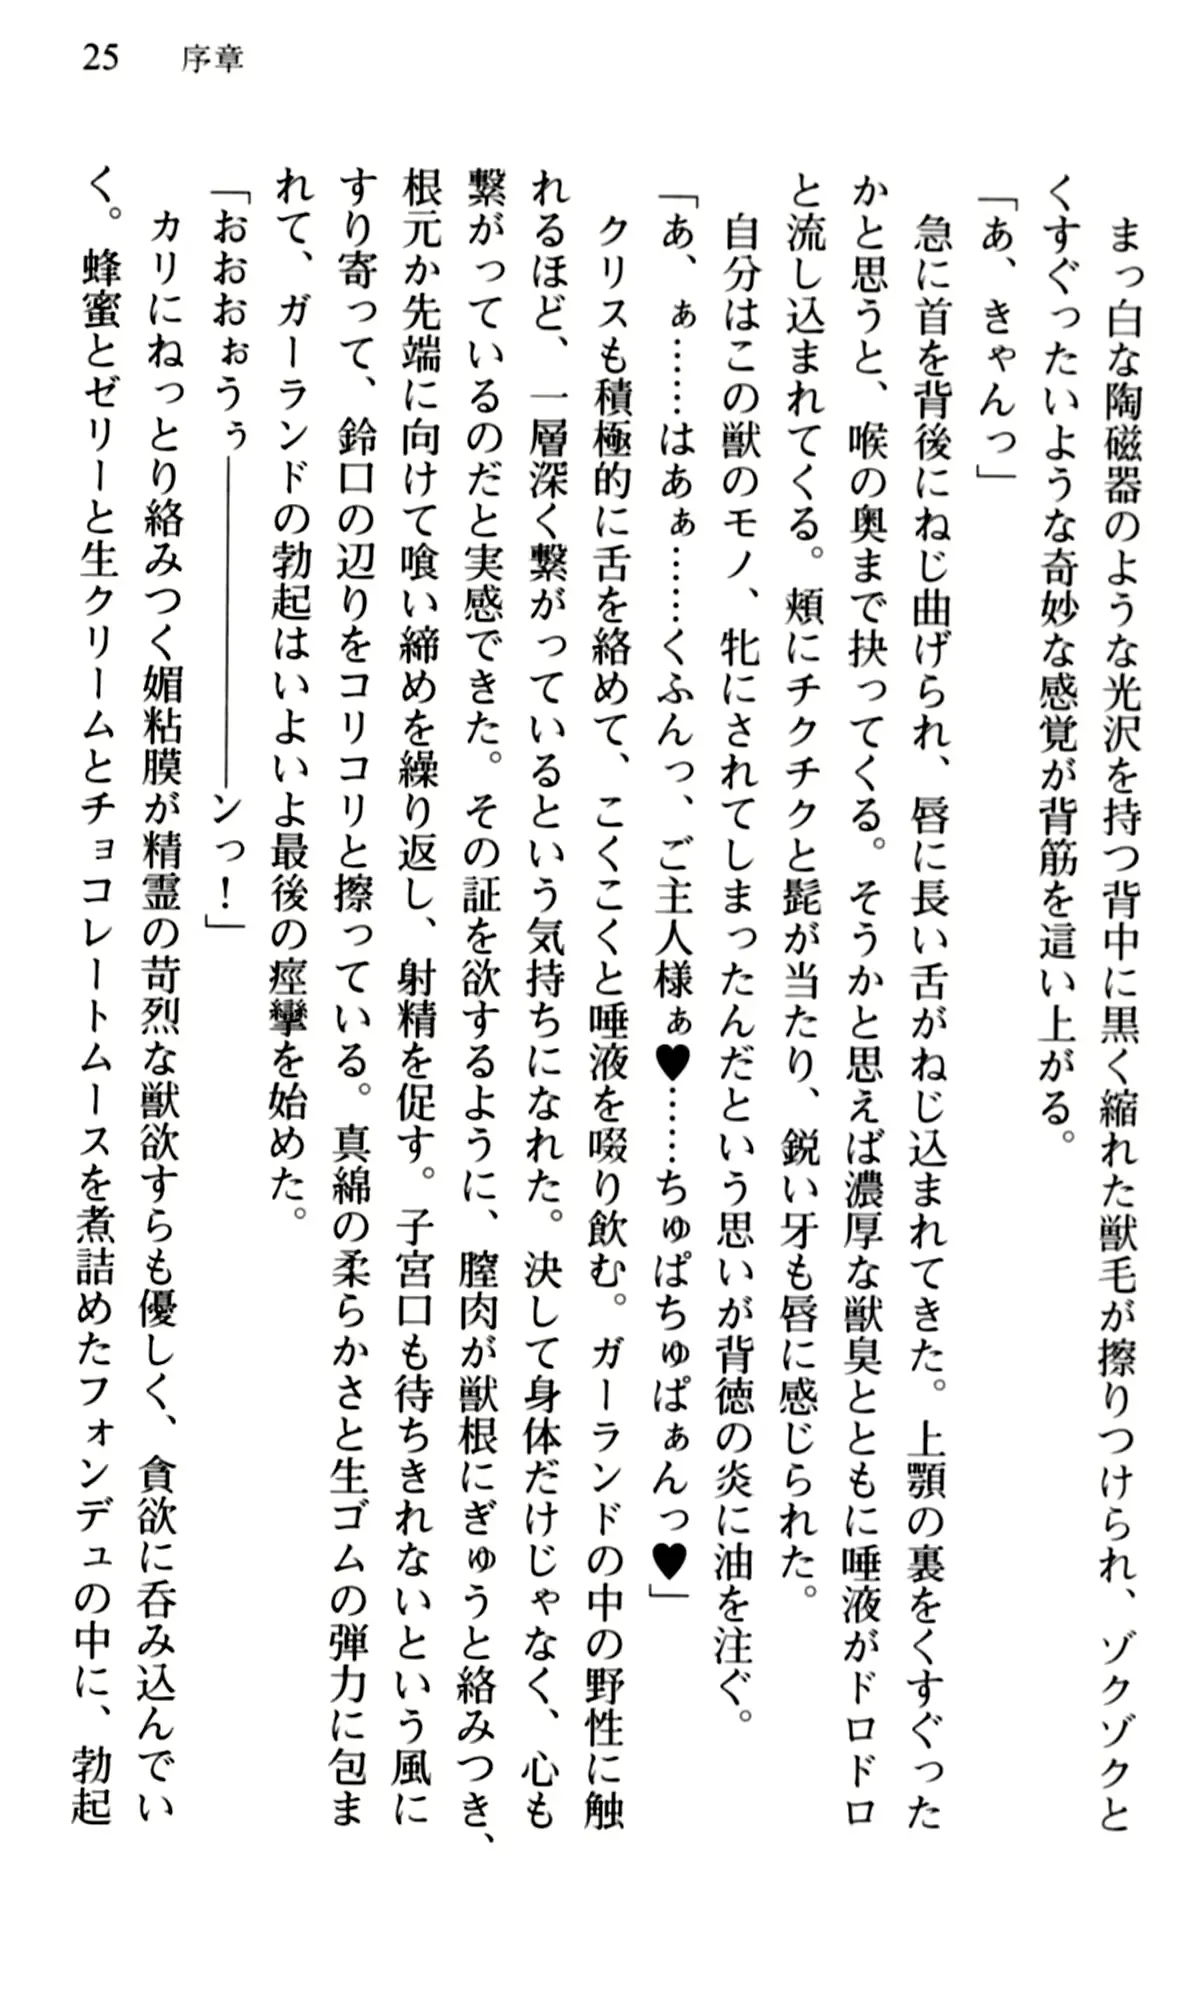 25 序章
まっ白な陶磁器のような光沢を持つ背中に黒く縮れた獣毛が擦りつけられ、ゾクゾクと
くすぐったいような奇妙な感覚が背筋を這い上がる。
「あ、きゃんっ」
急に首を背後にねじ曲げられ、唇に長い舌がねじ込まれてきた。上顎の裏をくすぐった
かと思うと、喉の奥まで抉ってくる。そうかと思えば濃厚な獣臭とともに唾液がドロドロ
と流し込まれてくる。頬にチクチクと髭が当たり、鋭い牙も唇に感じられた。
自分はこの獣のモノ、牝にされてしまったんだという思いが背徳の炎に油を注ぐ。
「あ、ぁ……はあぁ……くふんっ、ご主人様ぁ♥……ちゅぱちゅぱぁんっ♥」
クリスも積極的に舌を絡めて、こくこくと唾液を啜り飲む。ガーランドの中の野性に触
れるほど、一層深く繋がっているという気持ちになれた。決して身体だけじゃなく、心も
繋がっているのだと実感できた。その証を欲するように、膣肉が獣根にぎゅうと絡みつき、
根元か先端に向けて喰い締めを繰り返し、射精を促す。子宮口も待ちきれないという風に
すり寄って、鈴口の辺りをコリコリと擦っている。真綿の柔らかさと生ゴムの弾力に包ま
れて、ガーランドの勃起はいよいよ最後の痙攣を始めた。
「おおおぉうぅ――――――ンっ！」
カリにねっとり絡みつく媚粘膜が精霊の苛烈な獣欲すらも優しく、貪欲に呑み込んでい
く。蜂蜜とゼリーと生クリームとチョコレートムースを煮詰めたフォンデュの中に、勃起